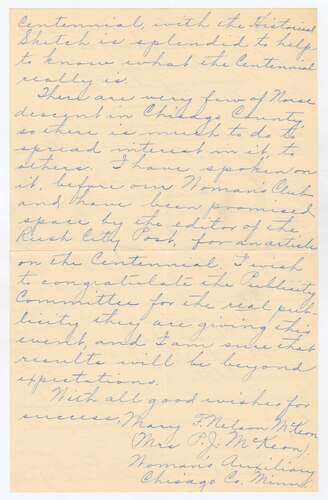 Centennial, with the Historical
Sketch is splendid to help
to know what the Centennial
really is.
There are very few of Norse
descent in Chisago County,
so there is much to do to
spread interest in it, to
others. I have spoken on
it, before our Woman's Club
and have been promised
space by the editor of the
Rush City Post, for an article
on the Centennial. I wish
to congratulate the Publicity
Committee for the real pub-
licity they are giving this
event, and I am sure that
results will be beyond
expectations.
With all good wishes for
success, Mary F. Nelson McKeon
(Mrs P. J. McKeon).
Womans Auxiliary
Chisago Co. Minn.